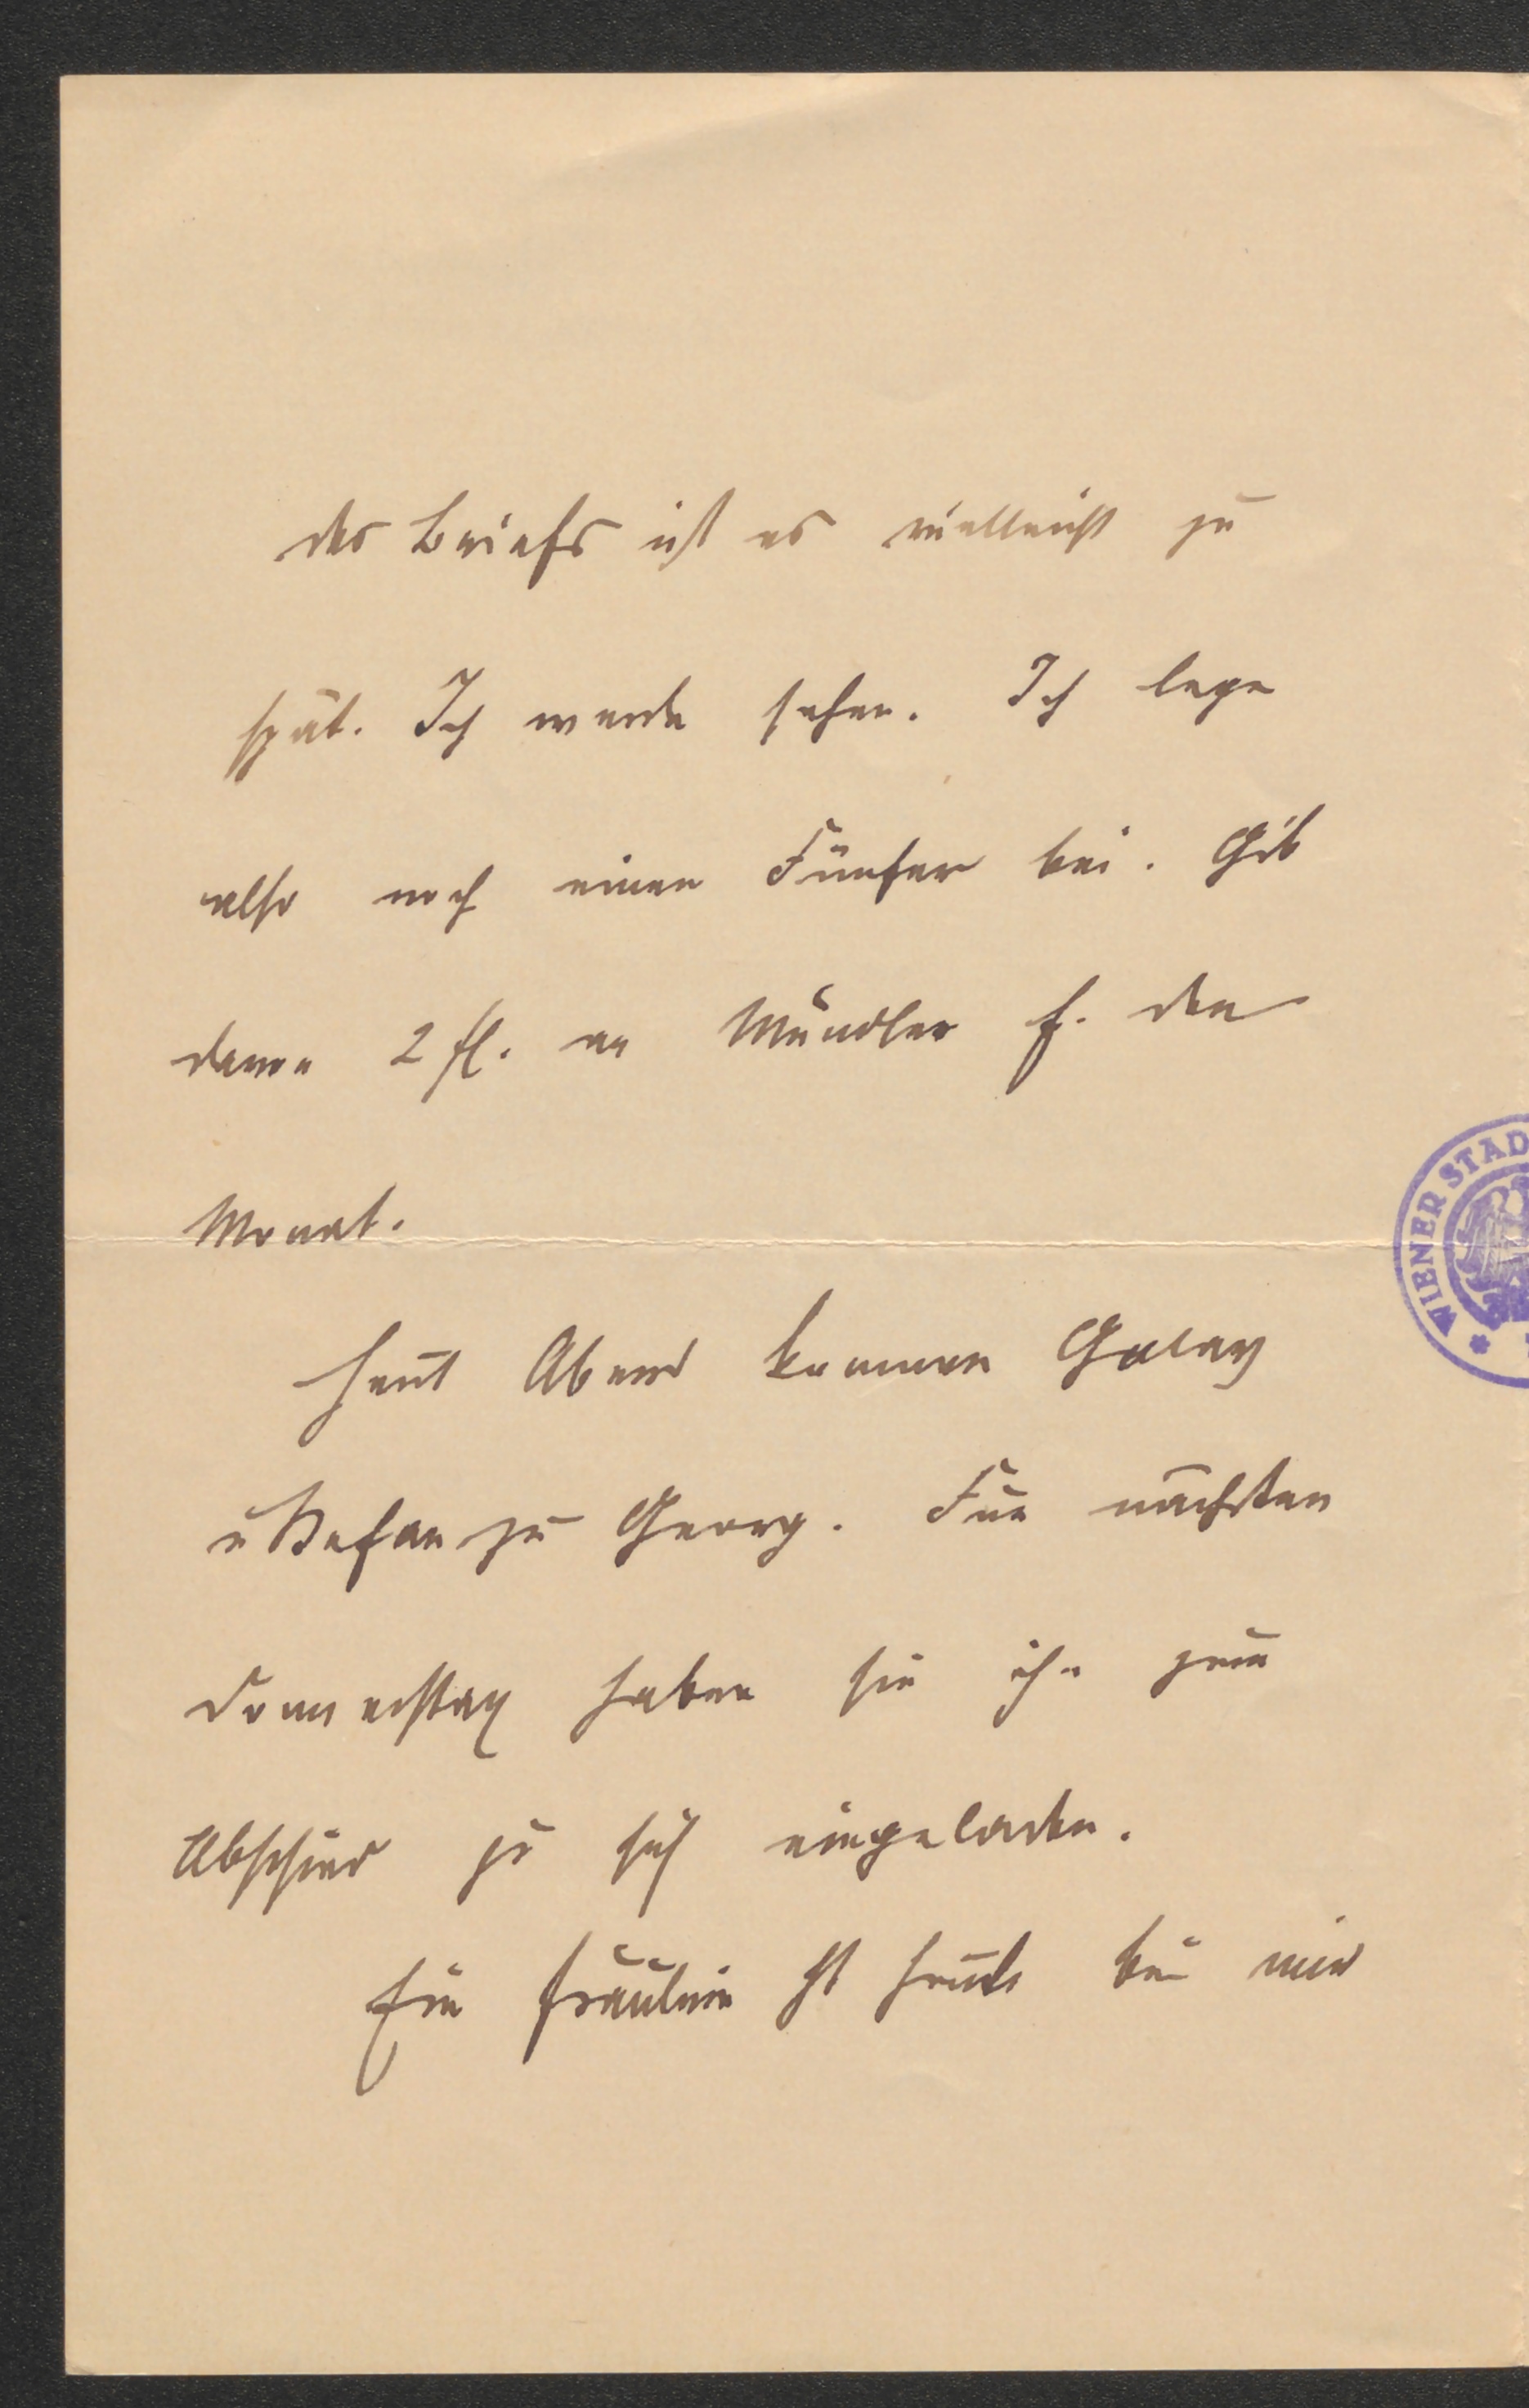 des Briefs ist es vielleicht zu
spät. Ich werde sehen. Ich lege
also noch einen Fünfer bei. Gib
davon 2 fl. an Mündler f. den
Monat.
Heut Abend kommen
u Stefan zu Georg. Für nächsten
Donnerstag haben sie ihn zum
Abschied zu sich eingeladen.
Ein Fräulein ist heute bei mir
WIENER STAD